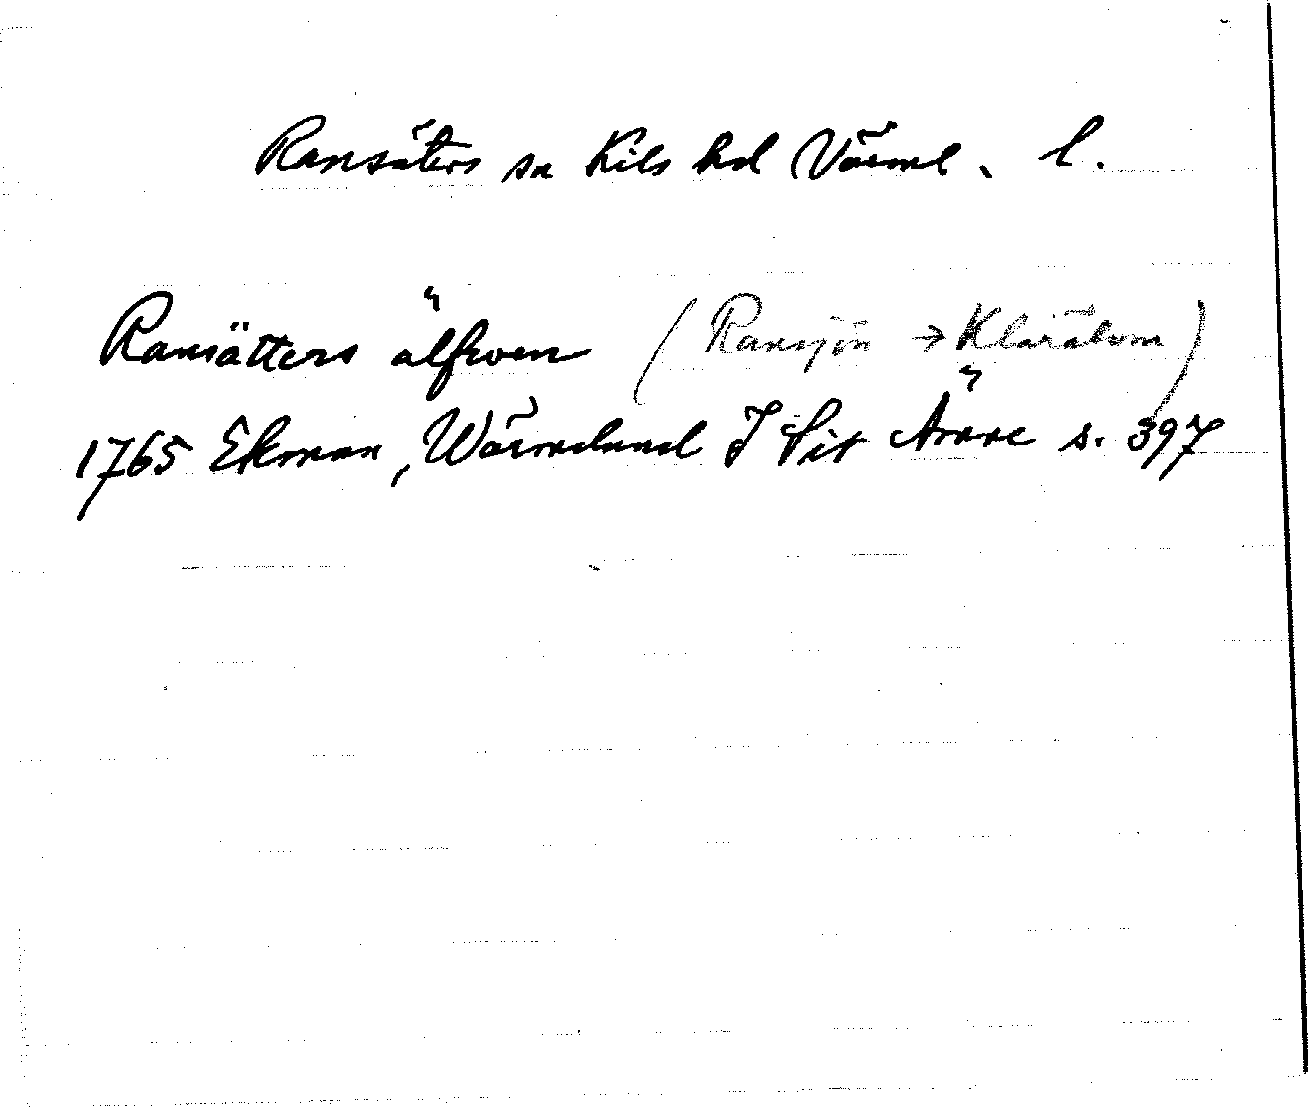 Ransäters sn Kils hd Värml. l.
Ransätters älfwen (Ransjön → Klarälven)
1765 Ekman, Wärmeland I Sit Ämne s. 397